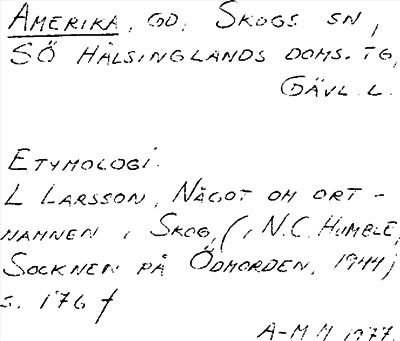 AMERIKA, GD, SKOGS SN,
SÖ HÄLSINGLANDS DOMS. TG,
GÄVL. L.
ETYMOLOGI.
L LARSSON, NÅGOT OM ORT-
NAMNEN I SKOG, (I N.C. HUMBLE,
SOCKNEN PÅ ÖDMORDEN, 1944)
S. 176 f
A-M M 1977.